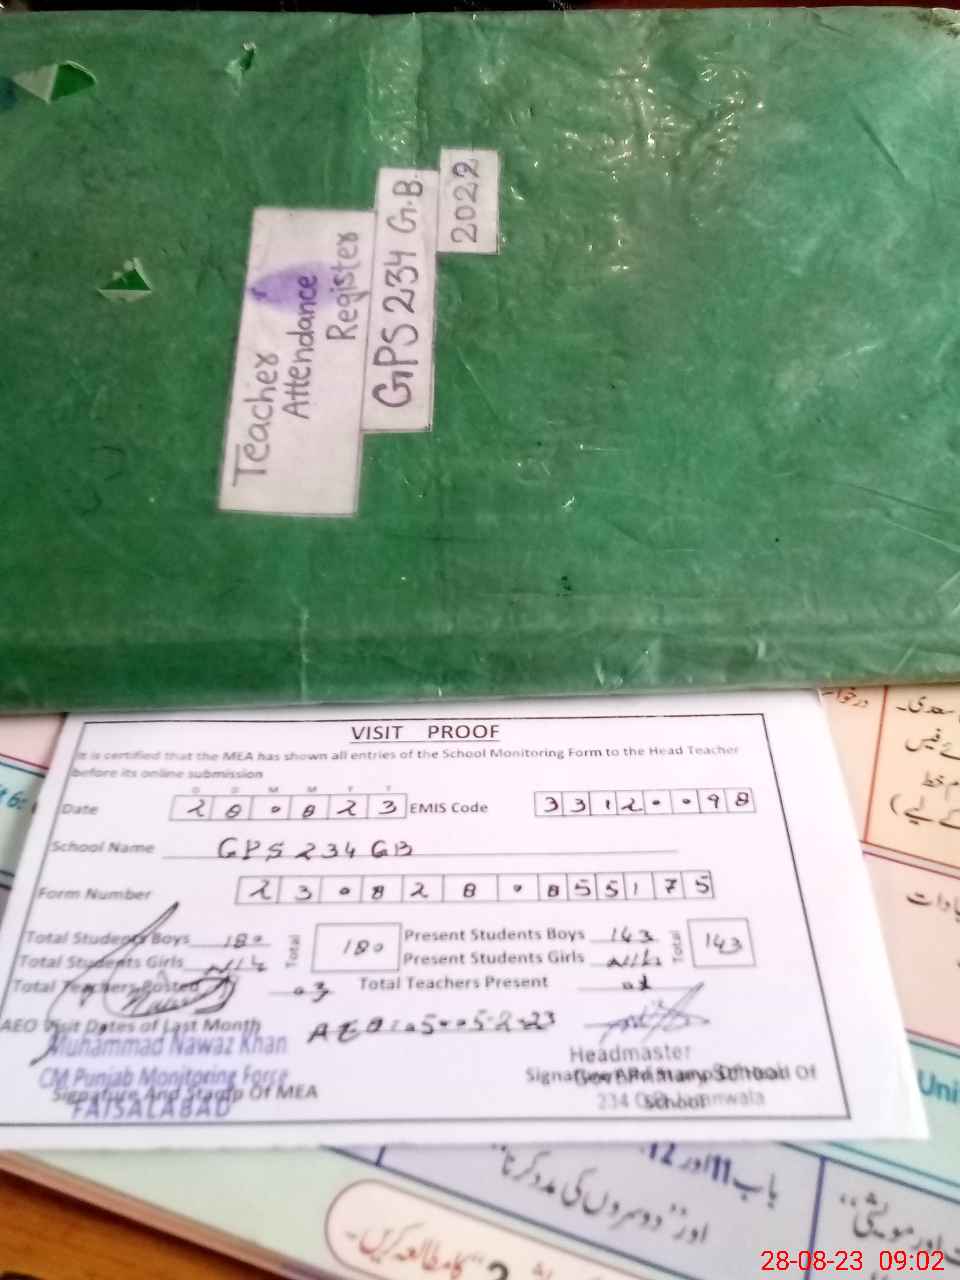 Teacher
Attendance
Register
GPS 234 G.B
2022
VISIT PROOF
It is certified that the MEA has shown all entries of the School Monitoring Form to the Head Teacher
before its online submission
D D M M Y Y
Date 280823 EMIS Code 33120098
School Name GPS 234 GB
Form Number
Total Students Boys 180 Total 180 Present Students Boys 143 Total 143
Total Students Girls Nil Present Students Girls Nil
Total Teachers Posted 03 Total Teachers Present
AEO Visit Dates of Last Month AEO:
Muhammad Nawaz Khan
CM Punjab Monitoring Force
Signature And Stamp Of MEA
FAISALABAD
Headmaster
Signature And Stamp Of Head Of
School
Govt. Primary School
234 G.B.
سعدی۔
درخواست
فیس
خط
کے لیے)
Unit
باب 11 اور 12
اور "دوسروں کی مدد کرنا"
اور مویشی"
کا مطالعہ کریں۔
28-08-23 09:02